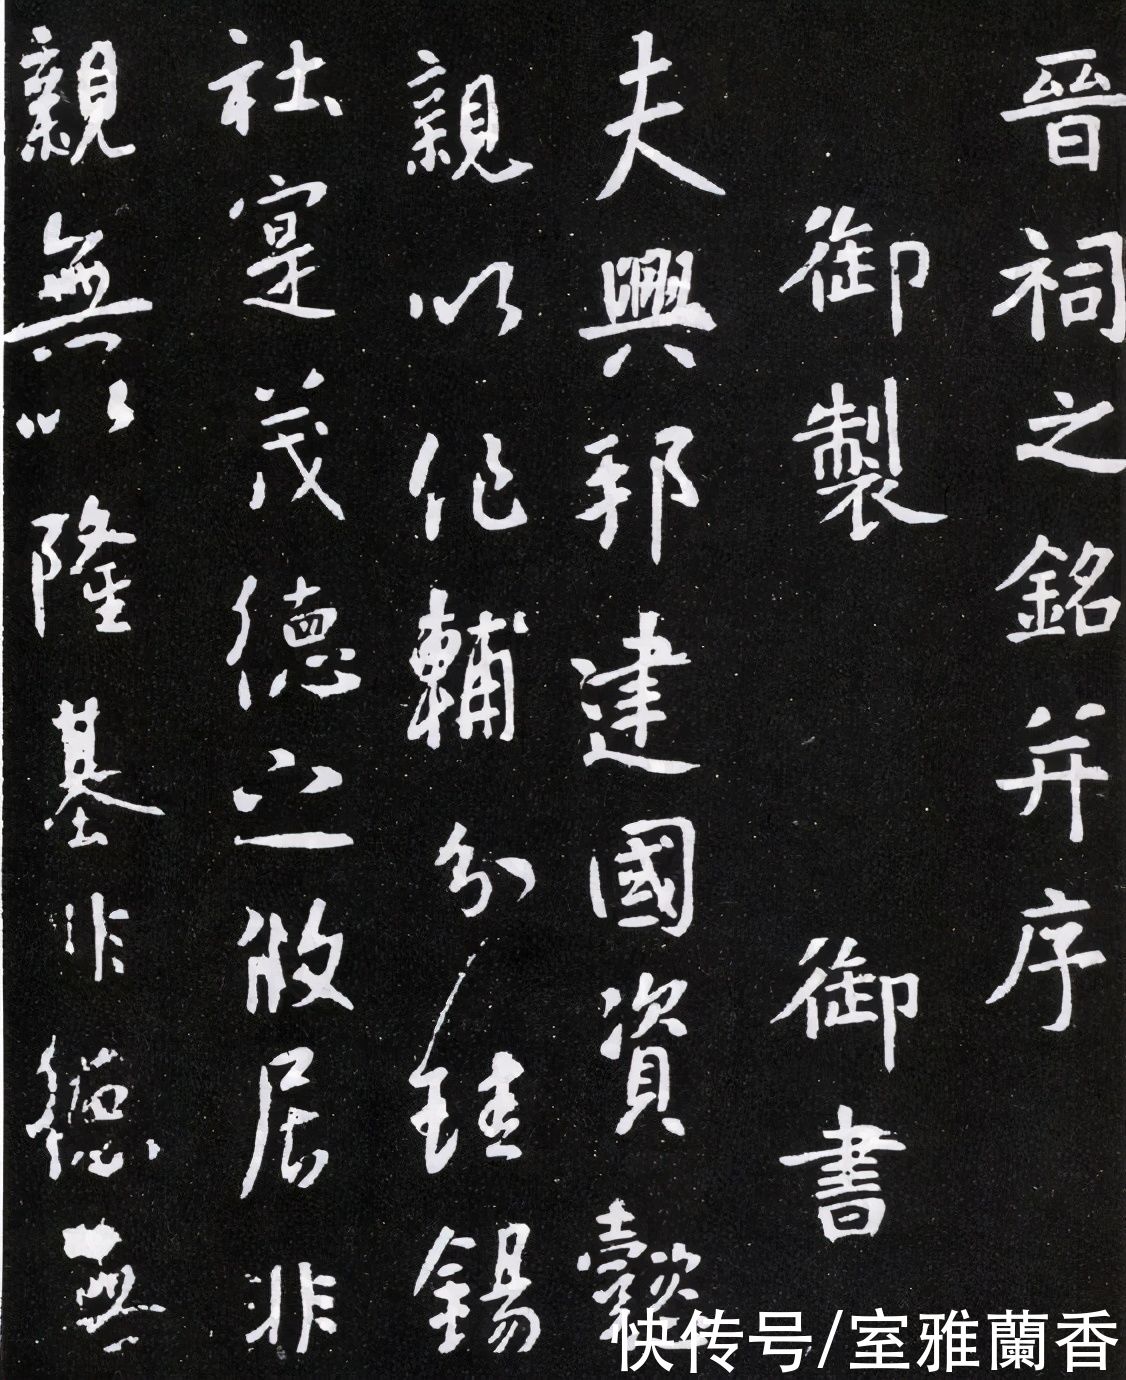 晉祠之銘并序
御製 御書
夫興邦建國資懿
親以作輔分珪錫
社寔茂德之攸居非
親無以隆基非德無
快传号/室雅蘭香